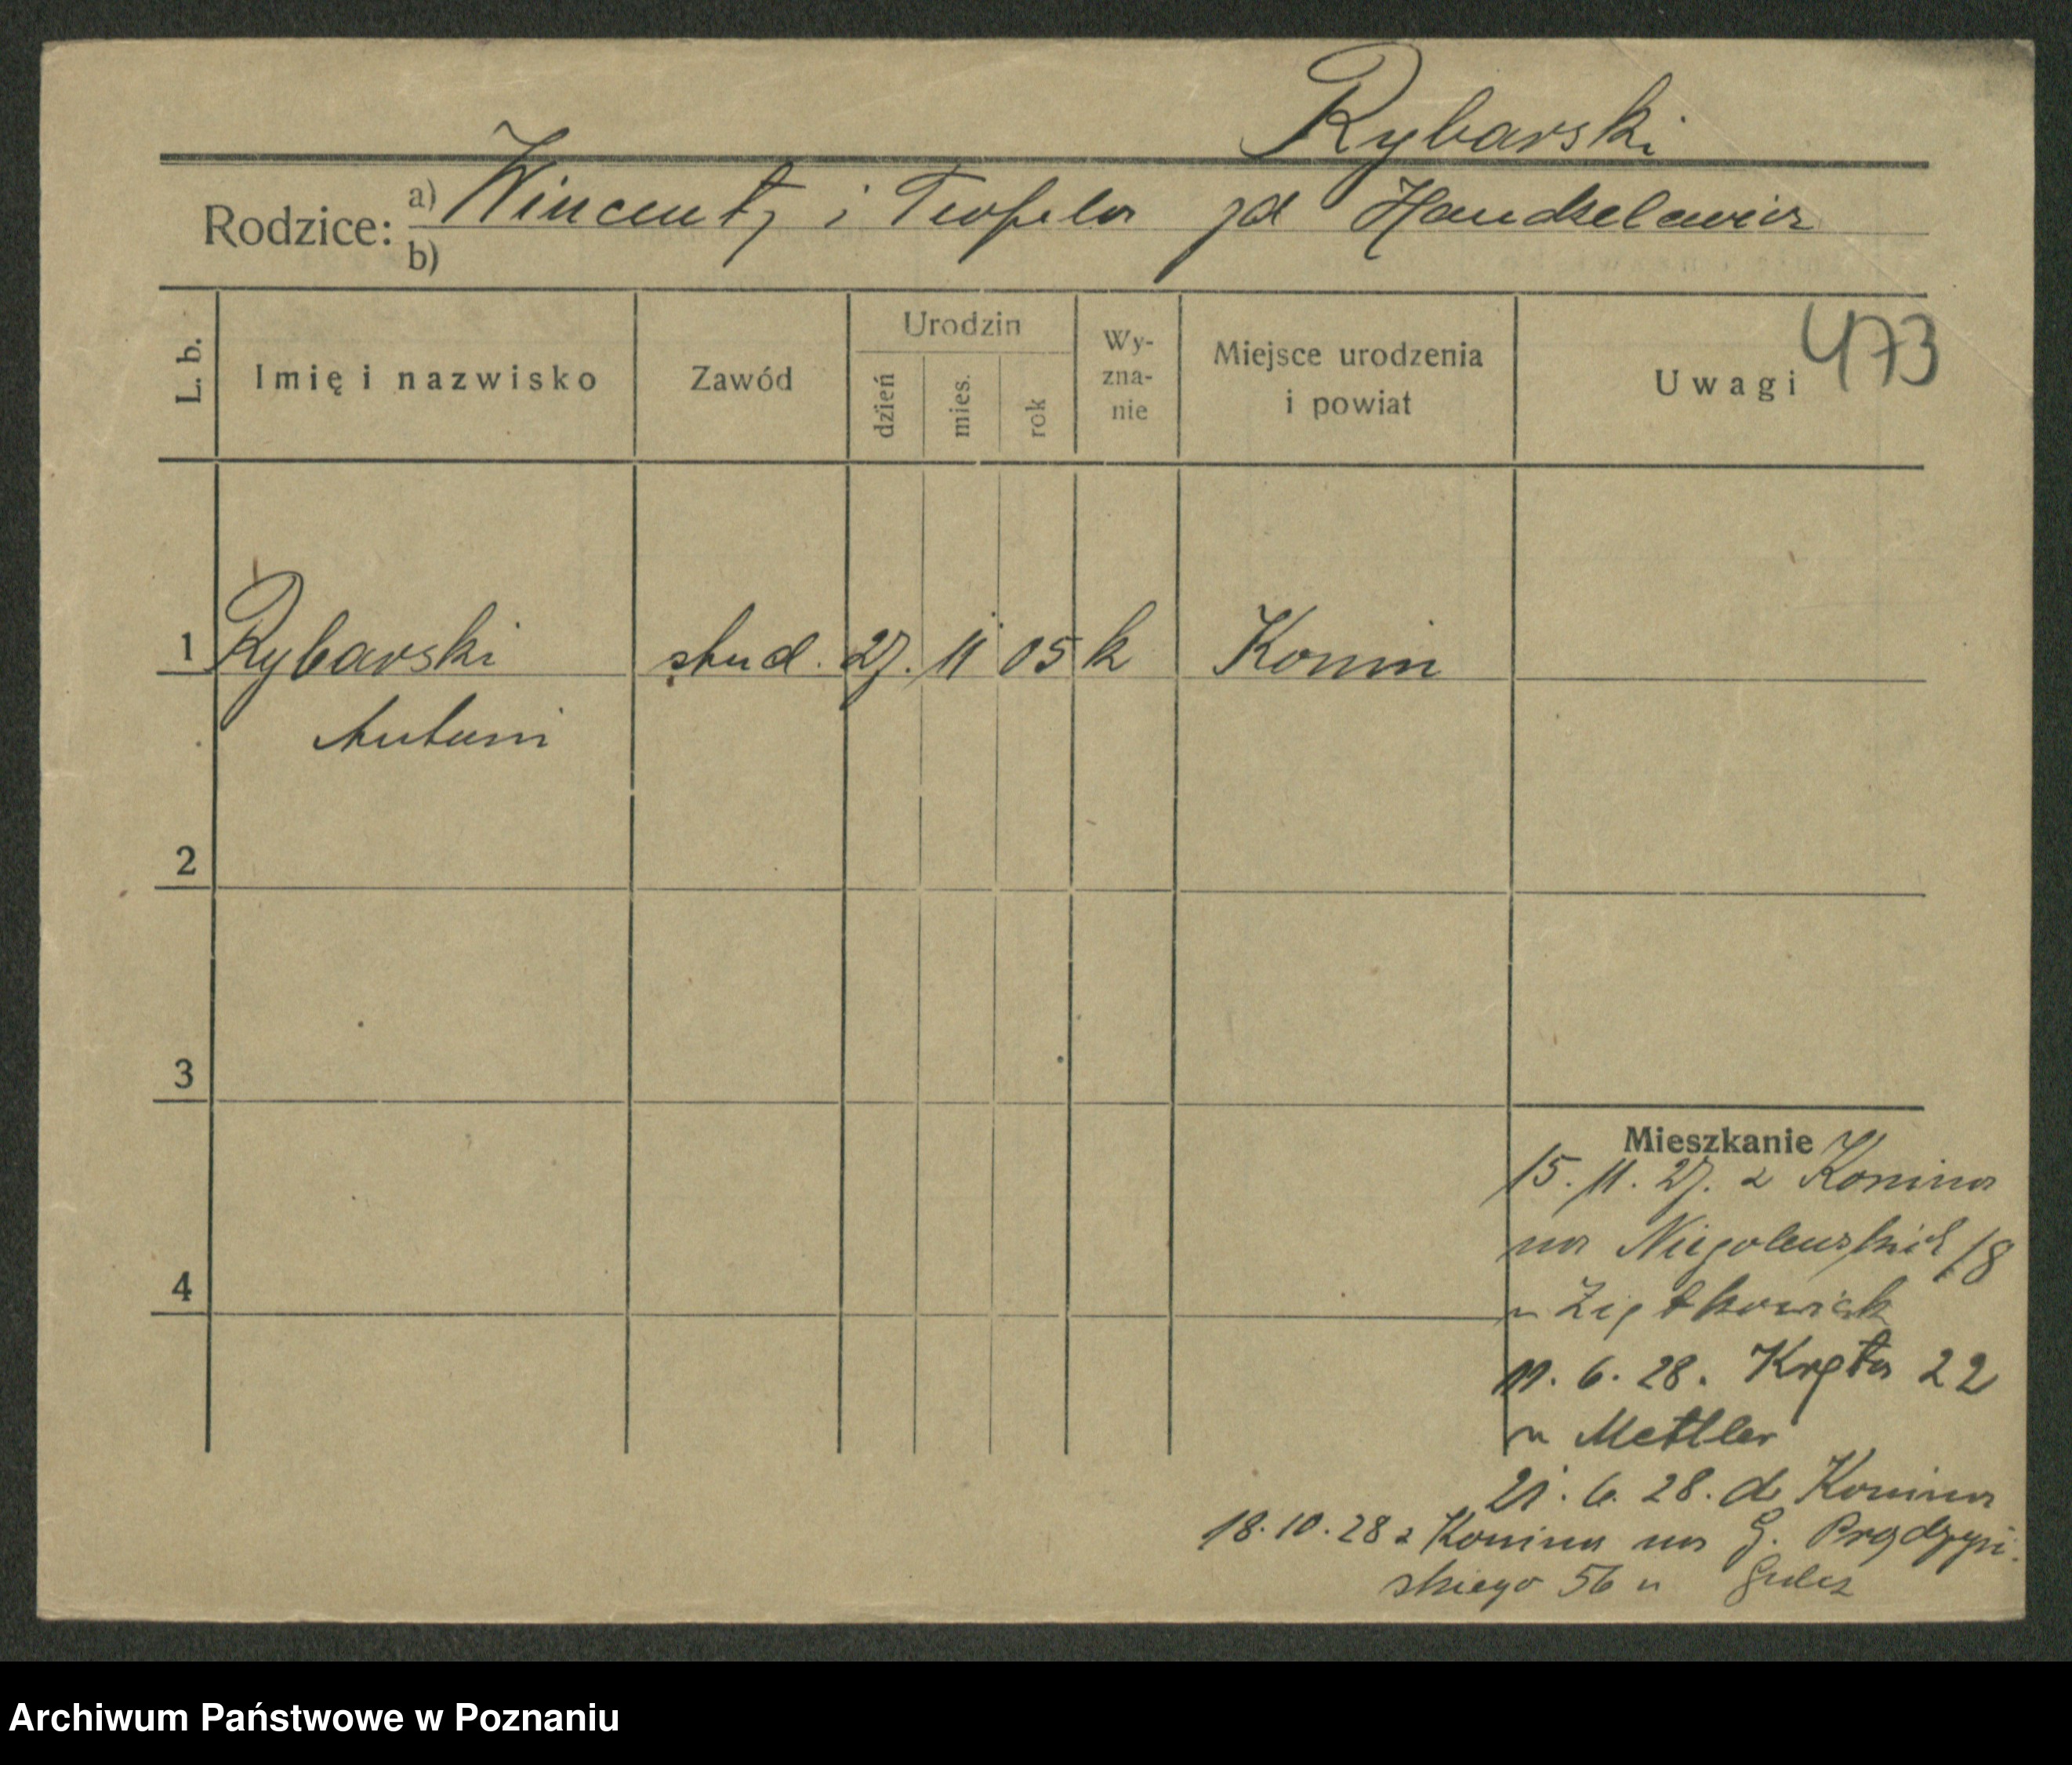 Rybarski
Rodzice: a) Wincenty i Teofila zd Handzelewicz
b)
L. b. Imię i nazwisko Zawód Urodzin dzień mies. rok Wy-zna-nie Miejsce urodzenia i powiat Uwagi 473
1 Rybarski stud. 27. 11 05 k Konin
Antoni
2
3
Mieszkanie
15. 11. 27. z Konina
na Niegolewskich 18
4
u Ziętkowiak
11. 6. 28. Kręta 22
u Mettler
21. 6. 28. do Konina
18. 10. 28 z Konina na G. Prądzyń-
skiego 56 u
Archiwum Państwowe w Poznaniu